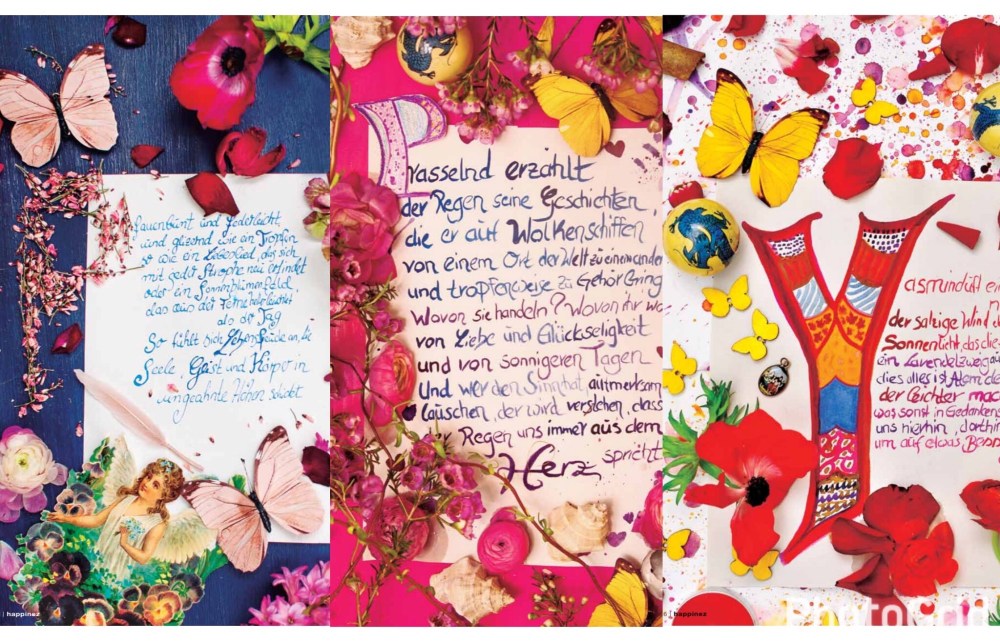 Pfauenbunt und federleicht,
und glänzend wie ein Tropfen
so wie ein Liebeslied, das sich
mit jeder Strophe neu erfindet
oder ein Sonnenblumenfeld,
das aus der Ferne heller leuchtet
als der Tag
So fühlt sich Lebensfreude an, die
Seele, Geist und Körper in
ungeahnte Höhen schickt
| happinez
Prasselnd erzählt
der Regen seine Geschichten,
die er auf Wolkenschiffen
von einem Ort der Welt zu einem anderen
und tropfenweise zu Gehör bringt
Wovon sie handeln? Wovon ihr wo
von Liebe und Glückseligkeit
und von sonnigeren Tagen
Und wer den Sinn hat, aufmerksam
lauschen, der wird verstehen, dass
der Regen uns immer aus dem
Herz spricht
| happinez
Yasminduft ein
der salzige Wind
Sonnenlicht, das die
ein Lavendelzweig
dies alles ist Atem de
der Leichter mac
was sonst in Gedanken
uns hierhin, dorthin
um auf etwas Beson